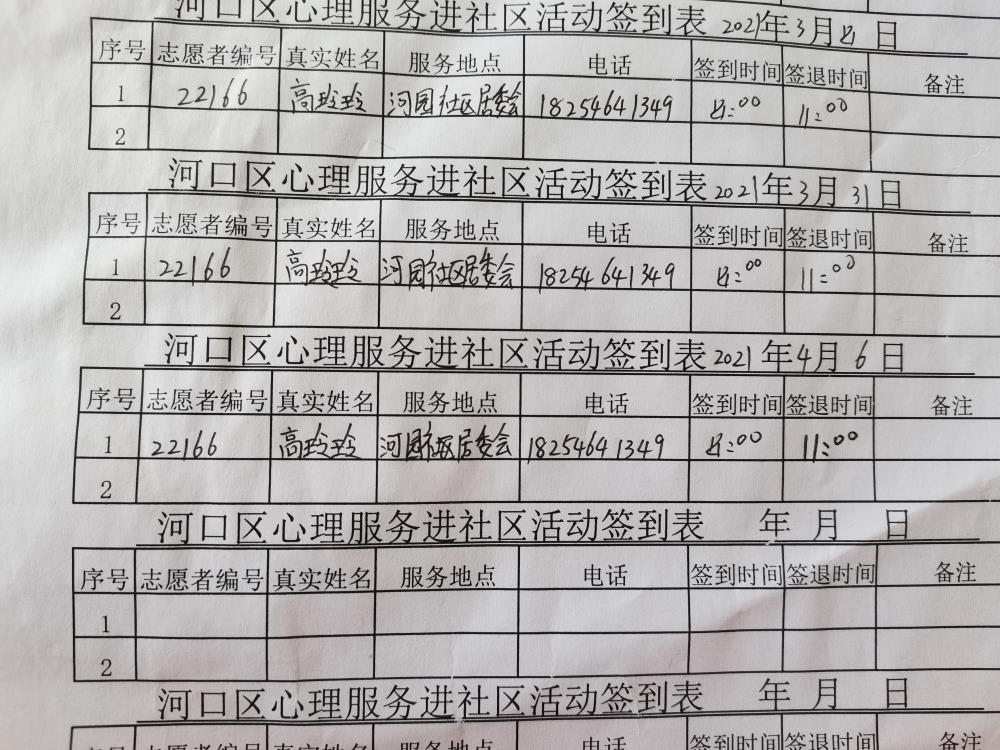 河口区心理服务进社区活动签到表 2021年3月 日
序号 志愿者编号 真实姓名 服务地点 电话 签到时间 签退时间 备注
1 22166 高玲玲 河园社区居委会 18254641349 :00 11:00
2
河口区心理服务进社区活动签到表 2021年3月31日
序号 志愿者编号 真实姓名 服务地点 电话 签到时间 签退时间 备注
1 22166 高玲玲 河园社区居委会 18254641349 :00 11:00
2
河口区心理服务进社区活动签到表 2021年4月6日
序号 志愿者编号 真实姓名 服务地点 电话 签到时间 签退时间 备注
1 22166 高玲玲 河园社区居委会 18254641349 :00 11:00
2
河口区心理服务进社区活动签到表 年 月 日
序号 志愿者编号 真实姓名 服务地点 电话 签到时间 签退时间 备注
1
2
河口区心理服务进社区活动签到表 年 月 日
序号 志愿者编号 真实姓名 服务地点 电话 签到时间 签退时间 备注